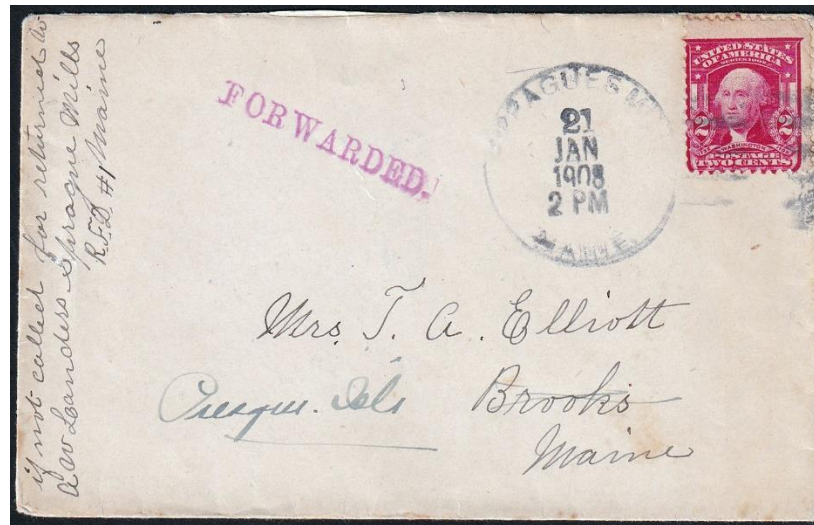 if not called for returned to
A W Landers Sprague Mills
R.F.D. #1 Maine
FORWARDED.
SPRAGUES M
21
JAN
1908
2 PM
MAINE.
UNITED STATES
OF AMERICA
SERIES 1902
2 2
WASHINGTON
POSTAGE
TWO CENTS
Mrs. T. A. Elliott
Presque. Isle Brooks
Maine